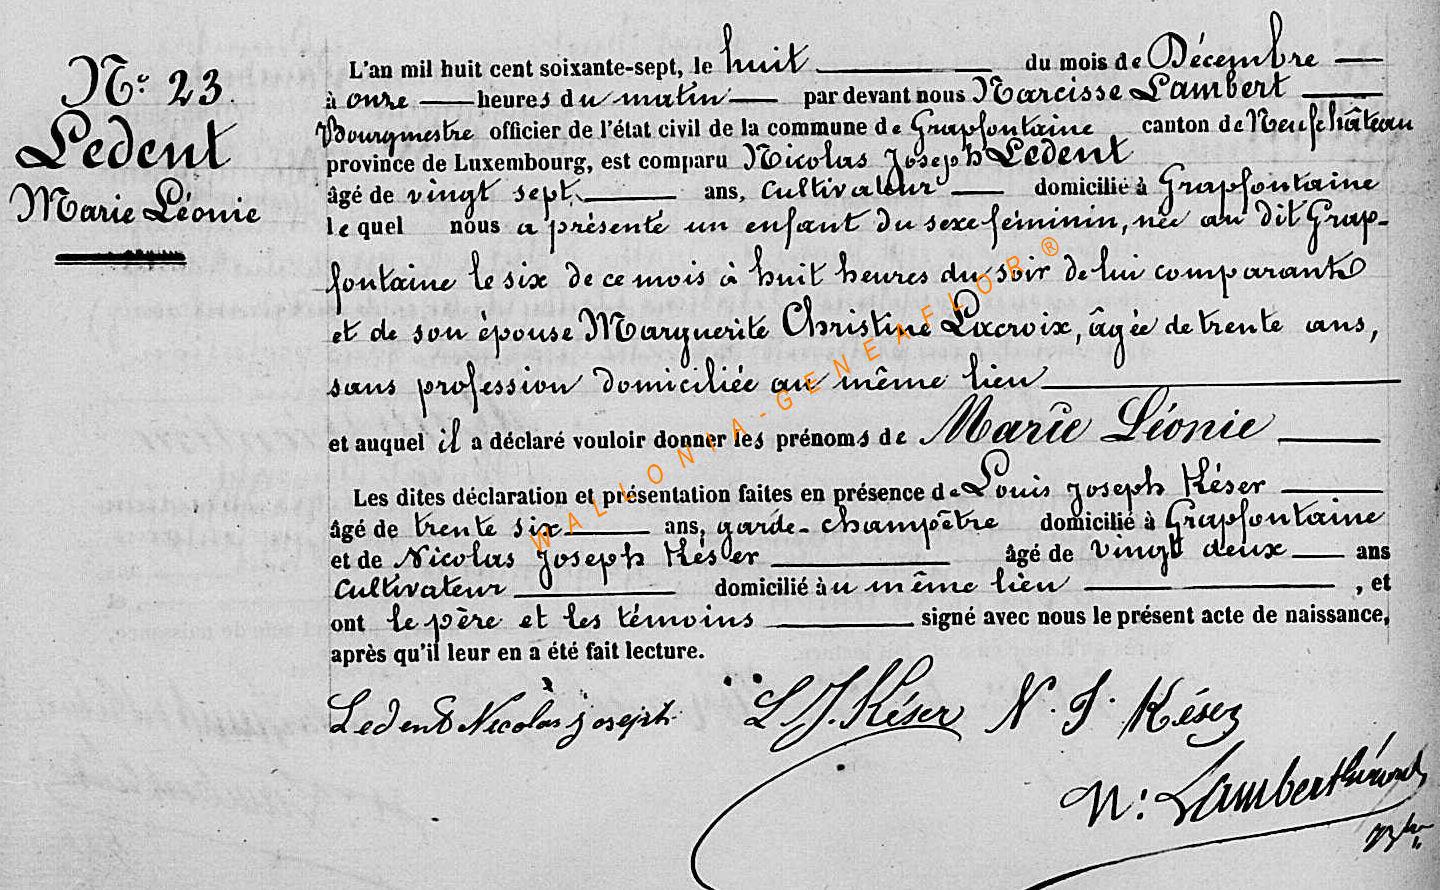 N.º 23.
Ledent
Marie Léonie
L'an mil huit cent soixante-sept, le huit du mois de Décembre
à onze heures du matin par devant nous Narcisse Lambert
Bourgmestre officier de l'état civil de la commune de Grapfontaine, canton de Neufchâteau
province de Luxembourg, est comparu Nicolas Joseph Ledent
âgé de vingt sept ans, cultivateur domicilié à Grapfontaine
lequel nous a présenté un enfant du sexe féminin, née au dit Grap-
fontaine le six de ce mois à huit heures du soir de lui comparant
et de son épouse Marguerite Christine Lacroix, âgée de trente ans,
sans profession domiciliée au même lieu
et auquel il a déclaré vouloir donner les prénoms de Marie Léonie
Les dites déclaration et présentation faites en présence de Louis Joseph Késer
âgé de trente six ans, garde-champêtre domicilié à Grapfontaine
et de Nicolas Joseph Késer âgé de vingt deux ans
cultivateur domicilié au même lieu, et
ont le père et les témoins signé avec nous le présent acte de naissance,
après qu'il leur en a été fait lecture.
Ledent Nicolas joseph L J. Késer N. J. Késer
N: Lambert
WALLONIA-GENEAFLOR®